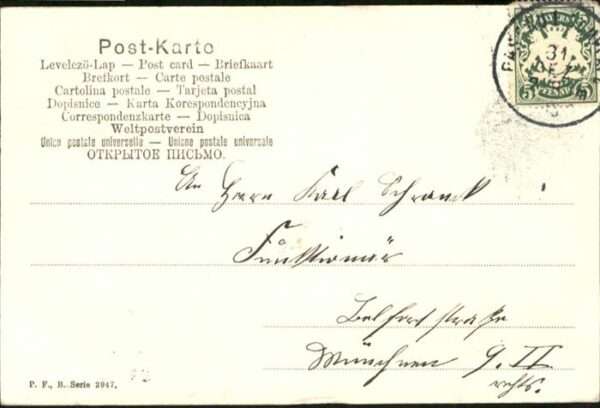 Post-Karte
Levelező-Lap — Post card — Briefkaart
Brefkort — Carte postale
Cartolina postale — Tarjeta postal
Dopisnice — Karta Korespondencyjna
Correspondenzkarte — Dopisnica
Weltpostverein
Union postale universelle — Unione postale universale
ОТКРЫТОЕ ПИСЬМО.
31
DEZ
5 PFENNIG 5
An Herrn Karl Schranck
Funktionär
Belfortstraße
München 9. II
rechts.
P. F., B. Serie 3947.